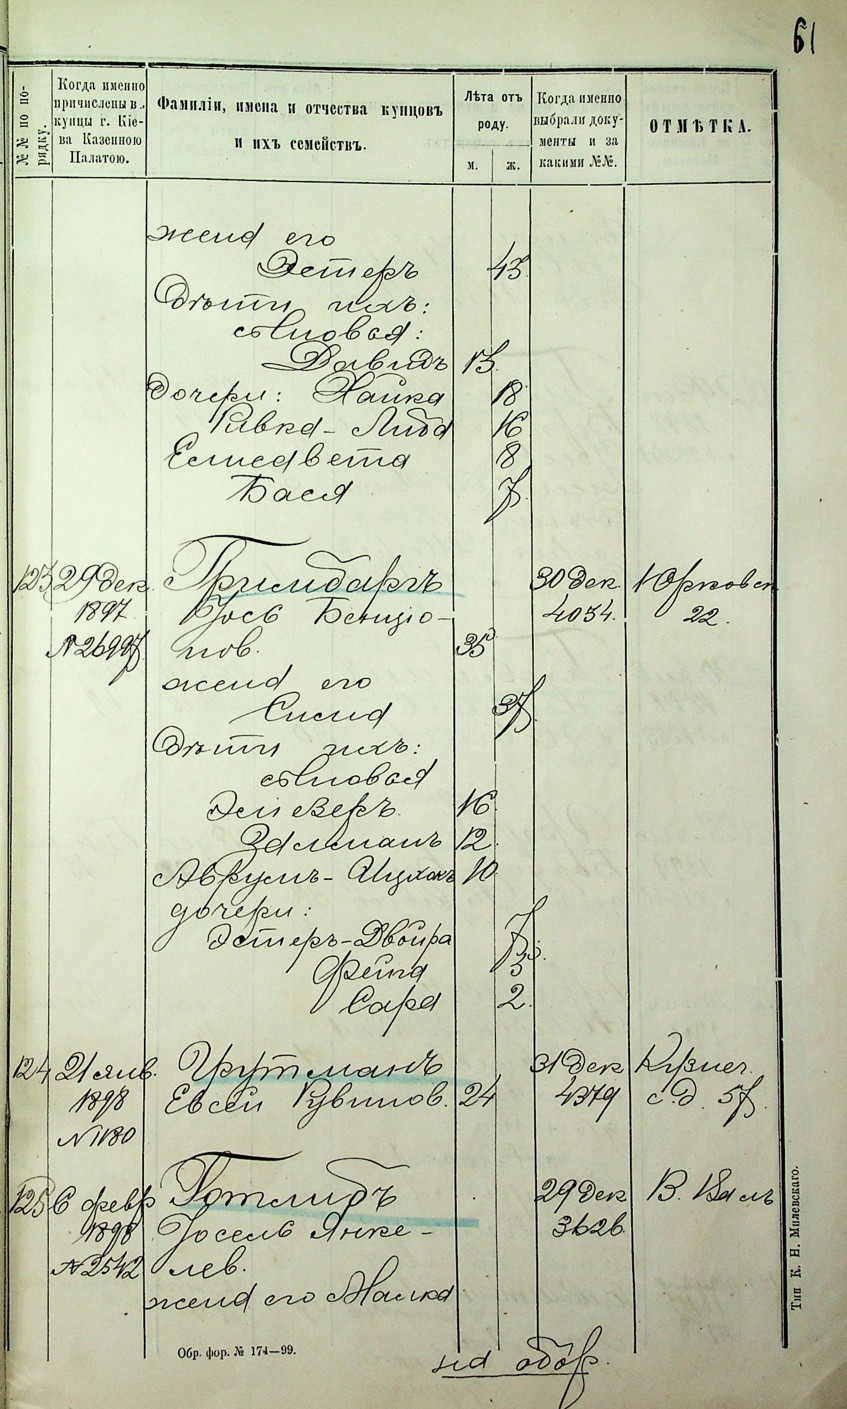 61
№№ по по-
рядку.
Когда именно
причислены в
купцы г. Кіе-
ва Казенною
Палатою.
Фамиліи, имена и отчества купцовъ
и ихъ семействъ.
Лѣта отъ
роду.
м. ж.
Когда именно
выбрали доку-
менты и за
какими №№.
ОТМѢТКА.
жена его
Эстеръ 43
Дѣти ихъ:
сыновья:
Давидъ 13
дочери: Хайка 18
Ривка-Либа 16
Елисавета 8
Бася 7
123 29 дек. Гринбаргъ 30 дек. Юрковск
1897 Іось Бенціо- 4054. 22.
№ 26997 нов. 35
жена его
37
Дѣти ихъ:
сыновья
Эліезеръ 16
Залманъ 12
Аврумъ-Ицхокъ 10
дочери:
Эстеръ-Двойра 7
Фейга 3
Сара 2.
124 21 янв. Грутманъ 31 дек Кузнеч.
1898 Евсей Рувинов. 24 4379 с.д. 57.
№ 1180
125 6 февр Готлибъ 29 дек В. Валъ
1898 Іосель Янке- 3626
№ 2542 лев.
жена его Малка
Обр. фор. № 174—99.
на обор.
Тип К. Н. Милевскаго.